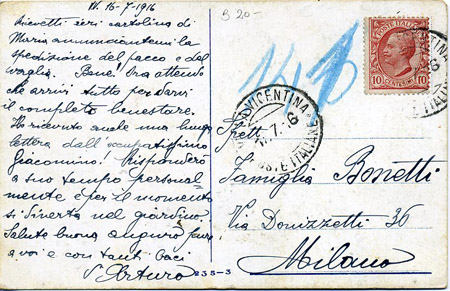 VI. 16-7-1916
Ricevetti ieri cartolina di
Maria annunciantemi la
spedizione del pacco e del
vaglia. Bene! Ora attendo
che arrivi tutto per darvi
il completo benestare.
Ho ricevuto anche una lunga
lettera dall'occupatissimo
Giacomino! Risponderò
a suo tempo personal-
mente e per il momento
si diverta nel giardino.
Salute buona auguro pure
a voi e con tanti baci
V. Arturo
235-3
B 20-
POSTE ITALIANE
10 CENTESIMI 10
VICENTINA
7.16
POSTE ITALIANE
Spett.
Famiglia Bonetti
Via Donizzetti 36
Milano